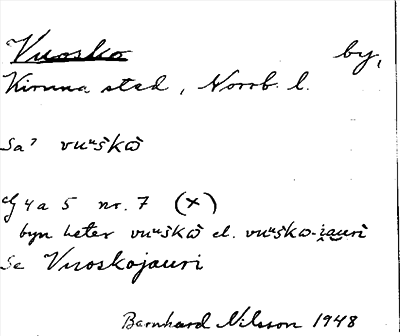 Vuosko by,
Kiruna stad, Norrb. l.
Sa? vuᵘškὼ
G 4 a 5 nr. 7 (x)
byn heter vuᵘškὼ el. vuᵘškω-i̯au̯ri
Se Vuoskojauri
Barnhard Nilsson 1948